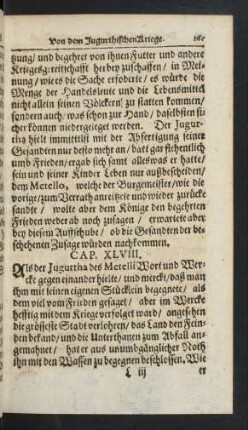 Von dem Jugurthischen Kriege. 161
zung/ und begehret von ihnen Futter und andere
Kriegsgereitschafft herbey zuschaffen/ in Mei-
nung/ wie es die Sache erfoderte/ es würde die
Menge der Handelsleute und die Lebensmittel
nicht allein seinen Völckern zu statten kommen/
sondern auch/ was schon zur Hand/ daselbsten si-
cher können niedergeleget werden. Der Jugur-
tha hielt immittelst mit der Abfertigung seiner
Gesandten nur desto mehr an/ batt gar flehentlich
umb Frieden/ ergab sich samt alles was er hatte/
sein und seiner Kinder Leben nur außbescheiden/
dem Metello, welche der Burgemeister/ wie die
vorige/ zum Verrath anreitzete und wieder zurücke
sandte/ wolte aber dem Könige den begehrten
Frieden weder ab noch zusagen/ erwartete aber
bey diesem Auffschube/ ob die Gesandten der be-
schehenen Zusage würden nachkommen.
CAP. XLVIII.
Als der Jugurtha des Metelli Wort und Wer-
cke gegen einander hielte/ und merckt/ daß man
ihm mit seinen eigenen Stücklein begegnete/ als
dem viel vom Frieden gesaget/ aber im Wercke
hefftig mit dem Kriege verfolget ward/ angesehen
die grösseste Stadt verlohren/ das Land den Fein-
den bekand/ und die Unterthanen zum Abfall an-
gemahnet/ hat er aus unumbgänglicher Noth
ihm mit den Waffen zu begegnen beschlossen. Wie
L iij er